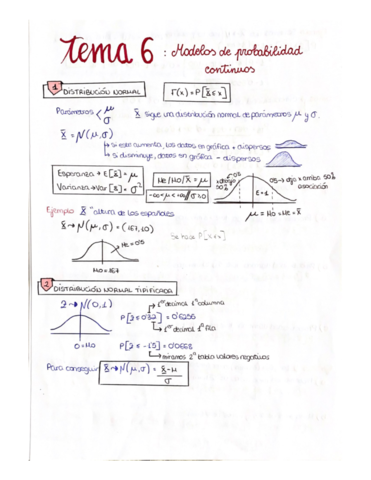 Tema 6 : Modelos de probabilidad
continuos
1 DISTRIBUCIÓN NORMAL
F(x) = P[X ≤ x]
Parámetros < μ
σ
X sigue una distribución normal de parámetros μ y σ.
X = N(μ,σ)
→ si este aumenta, los datos en gráfica + dispersos
→ si disminuye, datos en gráfica - dispersos
Esperanza → E[X] = μ
Varianza → Var[X] = σ²
Me/Mo/X̄ = μ
-∞<μ<+∞// σ>0
0'5
abajo
50%
E=1
0'5 → deja x arriba 50%
μ = Mo = Me = X̄
Ejemplo X "altura de los españoles
X → N(μ,σ) = (167,10)
Me = 0'5
Mo = 167
Se hace P[X≤x]
2 DISTRIBUCIÓN NORMAL TIPIFICADA
Z → N(0,1)
→ 1er decimal 1ª columna
P[Z ≤ 0'32] = 0'6256
→ 1er decimal 1ª fila
0 = Mo
P[Z ≤ -1'5] = 0'0668
→ miramos 2ª tabla valores negativos
Para conseguir X → N(μ,σ) = X-μ
σ